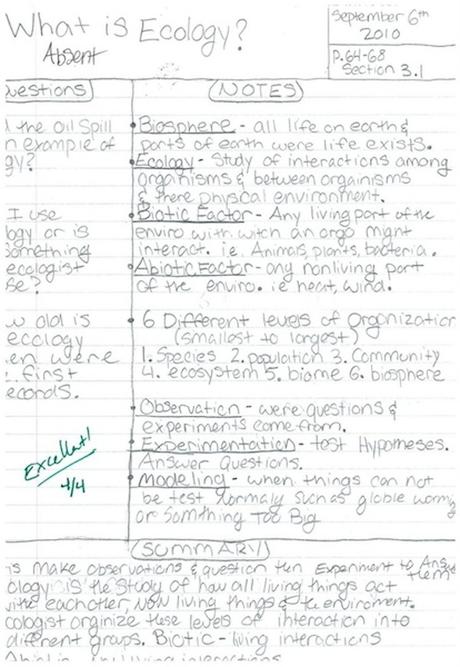 What is Ecology?
Absent
September 6th
2010
p.64-68
Section 3.1
uestions
(NOTES)
the Oil Spill
n example of
gy?
I use
logy or is
Something
ecologist
se?
w old is
ecology
en were
first
ecords.
Excellent!
4/4
• Biosphere - all life on earth &
parts of earth were life exists.
• Ecology - Study of interactions among
orgainisms & between orgainisms
& there physcal environment.
• Biotic Factor - Any living part of the
enviro with witch an orgo might
interact. i.e. Animals, plants, bacteria.
• Abiotic Factor - any nonliving part
of the enviro. ie heat, wind.
• 6 Different levels of Organization
(smallest to largest)
1. Species 2. population 3. Community
4. ecosystem 5. biome 6. biosphere
• Observation - were questions &
experiments come from.
• Experimentation - test Hypotheses.
Answer Questions.
• Modeling - when things can not
be test normaly such as globle worming
or Somthing Too Big
(SUMMARY)
is make observations & question then Experiment to Answer them
ology is the study of how all living things act
with eachother, Non living things & the enviroment.
cologist orginize these levels of interaction into
different groups. Biotic - living interactions